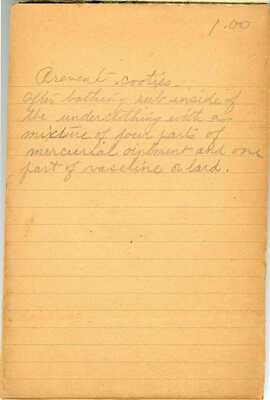 1.00
Prevent cooties
After bathing rub inside of
the underclothing with a
mixture of four parts of
mercurial ointment and one
part of vaseline or lard.